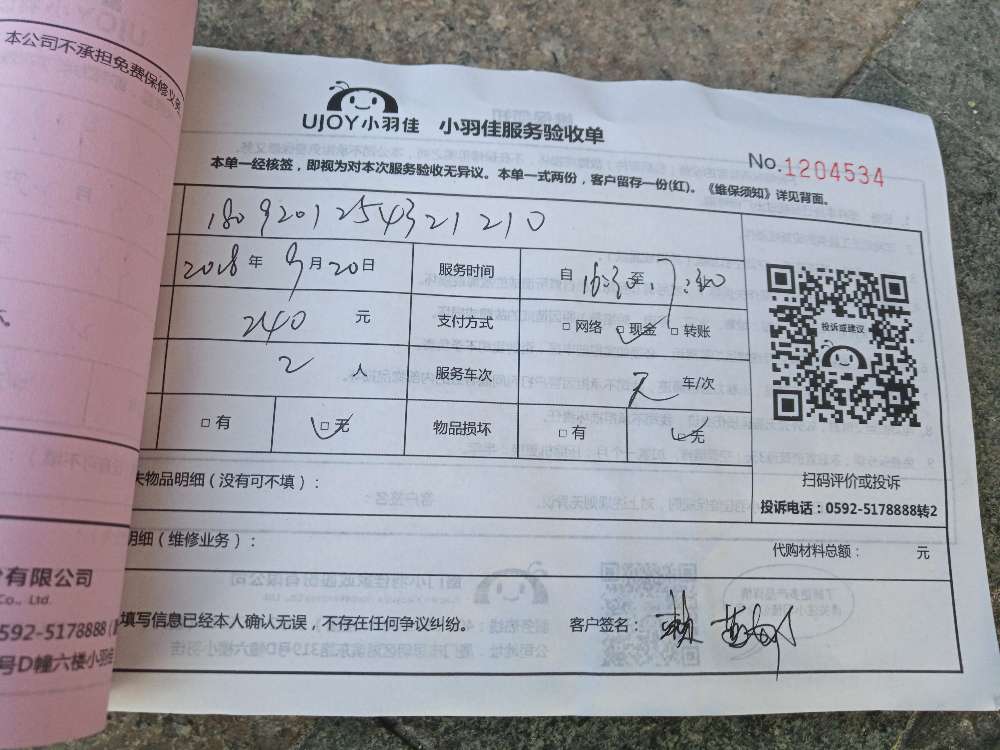 本公司不承担免费保修义务
UJOY小羽佳 小羽佳服务验收单
No.1204534
本单一经核签，即视为对本次服务验收无异议。本单一式两份，客户留存一份(红)。《维保须知》详见背面。
1809201254321210
2018年9月20日 服务时间 自16:30至
240元 支付方式 □网络 □现金 □转账
投诉或建议
2人 服务车次 车/次
□有 □无 物品损坏 □有 □无
失物品明细（没有可不填）：
扫码评价或投诉
投诉电话：0592-5178888转2
明细（维修业务）：
代购材料总额： 元
有限公司
Co., Ltd.
填写信息已经本人确认无误，不存在任何争议纠纷。 客户签名：
592-5178888
号D幢六楼小羽佳